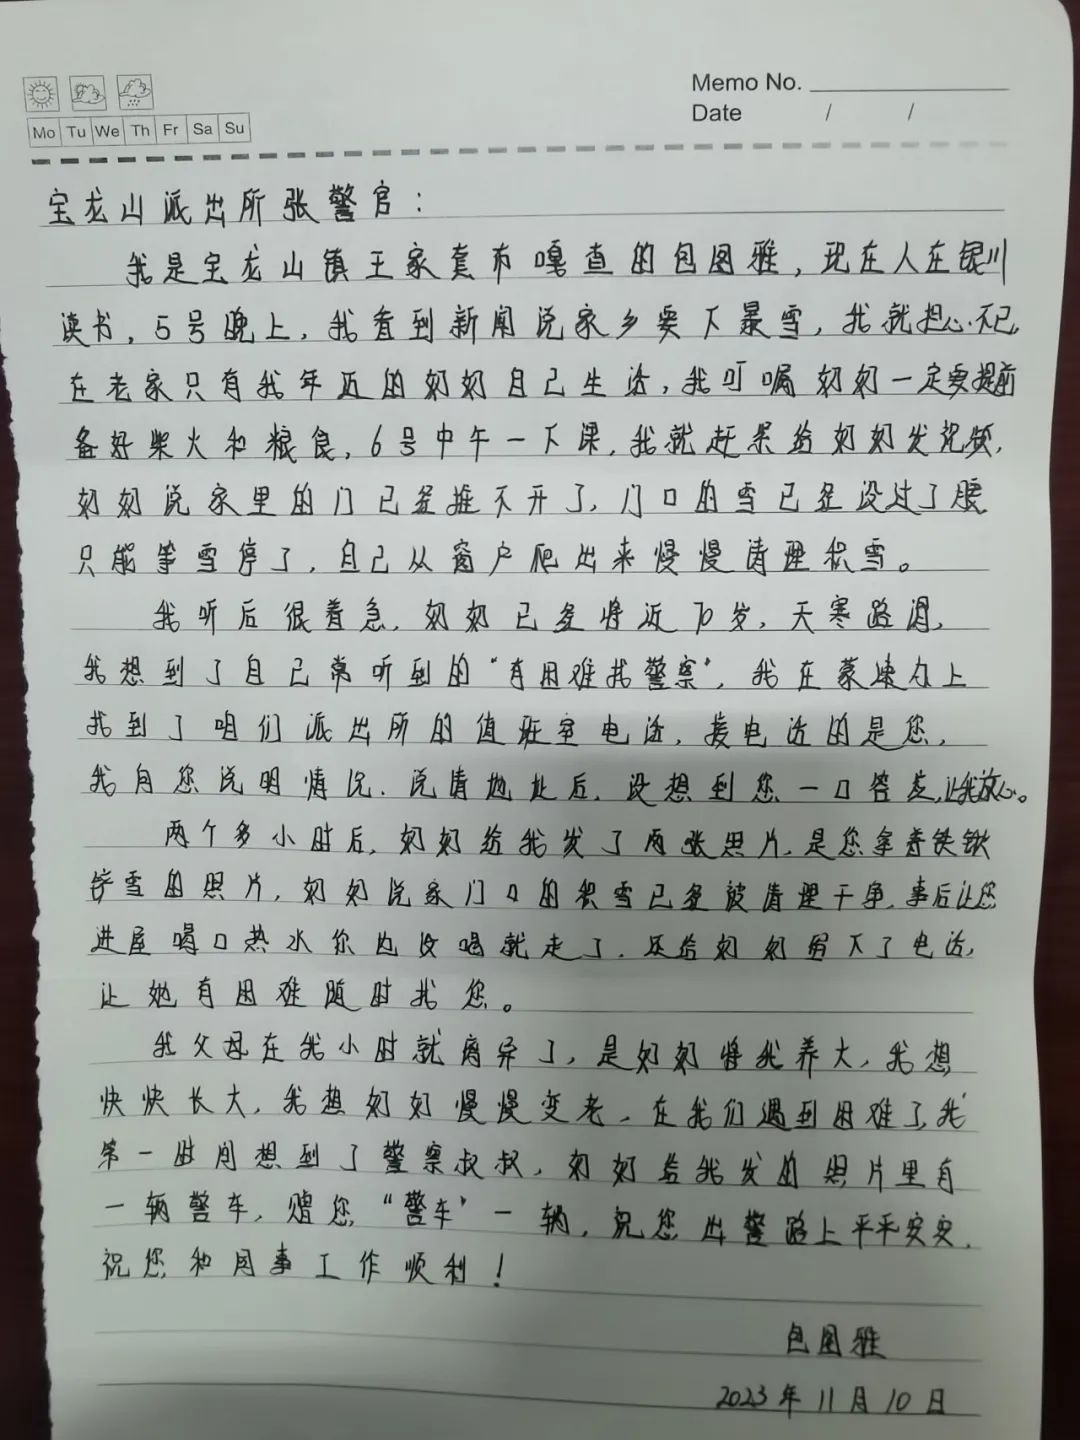 Memo No.
Mo Tu We Th Fr Sa Su
Date / /
宝龙山派出所张警官：
我是宝龙山镇王家套布嘎查的包图雅，现在人在银川
读书，5号晚上，我看到新闻说家乡要下暴雪，我就担心不已，
在老家只有我年迈的奶奶自己生活，我叮嘱奶奶一定要提前
备好柴火和粮食，6号中午一下课，我就赶紧给奶奶发视频，
奶奶说家里的门已经推不开了，门口的雪已经没过了腰
只能等雪停了，自己从窗户爬出来慢慢清理积雪。
我听后很着急，奶奶已经将近70岁，天寒路滑，
我想到了自己常听到的“有困难找警察”，我在蒙速办上
找到了咱们派出所的值班室电话，接电话的是您，
我向您说明情况，说清地址后，没想到您一口答应，让我放心。
两个多小时后，奶奶给我发了两张照片，是您拿着铁锹
铲雪的照片，奶奶说家门口的积雪已经被清理干净，事后让您
进屋喝口热水你也没喝就走了，还给奶奶留下了电话，
让她有困难随时找您。
我父母在我小时就离异了，是奶奶将我养大，我想
快快长大，我想奶奶慢慢变老，在我们遇到困难了，我
第一时间想到了警察叔叔，奶奶给我发的照片里有
一辆警车，赠您“警车”一辆，祝您出警路上平平安安，
祝您和同事工作顺利！
包图雅
2023年11月10日